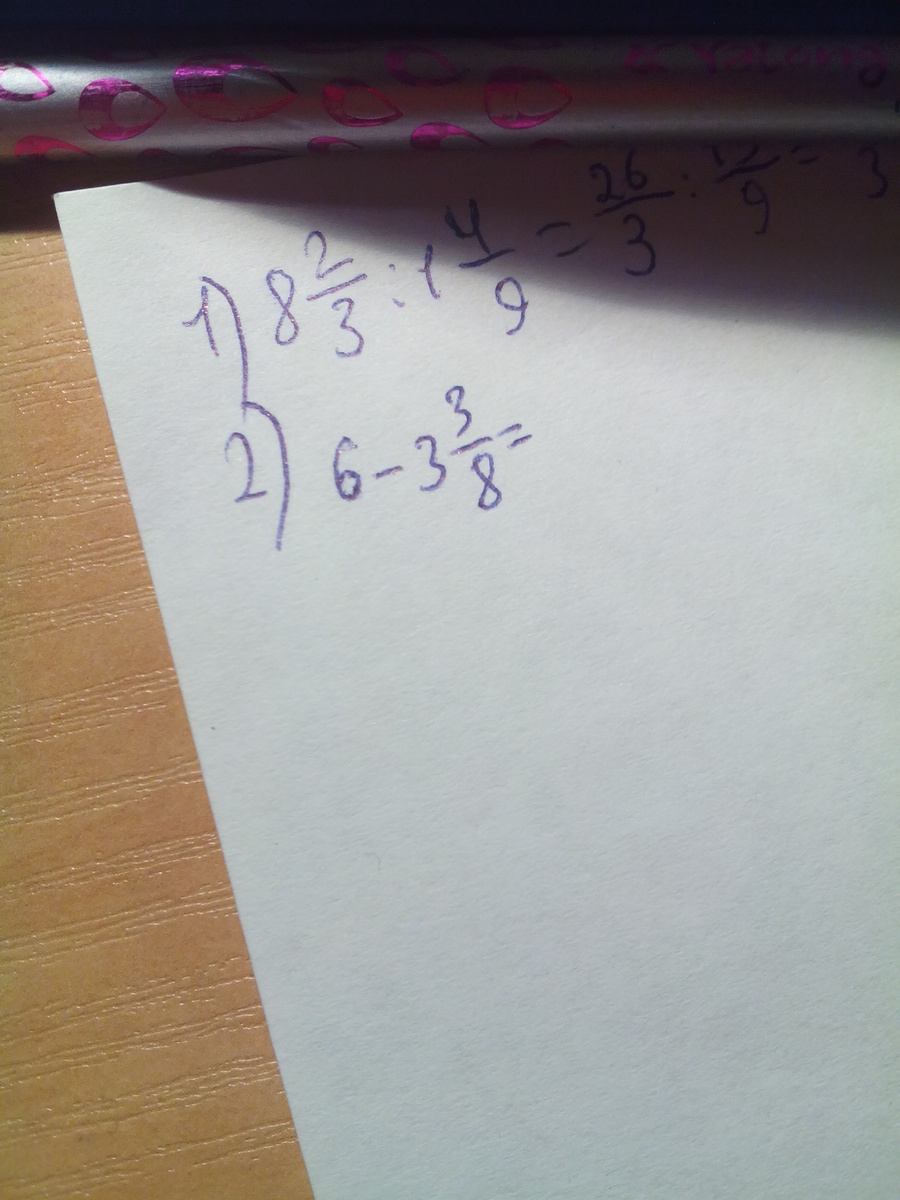 1) 8 2/3 : 1 4/9 = 26/3 : 12/9 = 3
2) 6 - 3 3/8 =